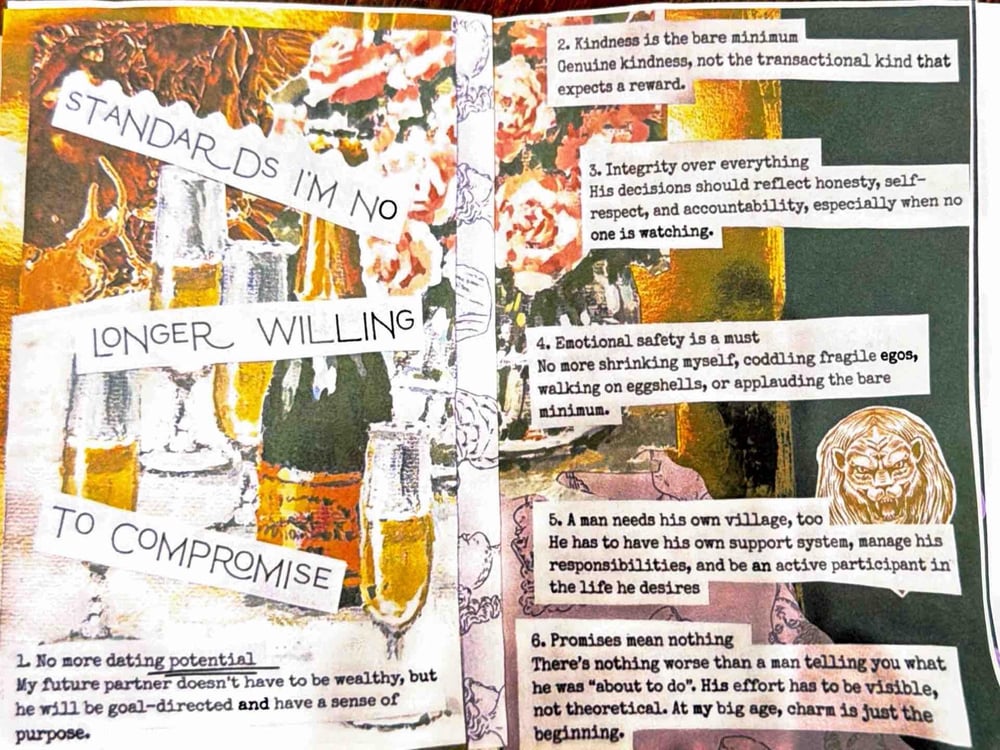 STANDARDS I'M NO
LONGER WILLING
TO COMPROMISE
1. No more dating potential
My future partner doesn't have to be wealthy, but
he will be goal-directed and have a sense of
purpose.
2. Kindness is the bare minimum
Genuine kindness, not the transactional kind that
expects a reward.
3. Integrity over everything
His decisions should reflect honesty, self-
respect, and accountability, especially when no
one is watching.
4. Emotional safety is a must
No more shrinking myself, coddling fragile egos,
walking on eggshells, or applauding the bare
minimum.
5. A man needs his own village, too
He has to have his own support system, manage his
responsibilities, and be an active participant in
the life he desires
6. Promises mean nothing
There's nothing worse than a man telling you what
he was "about to do". His effort has to be visible,
not theoretical. At my big age, charm is just the
beginning.